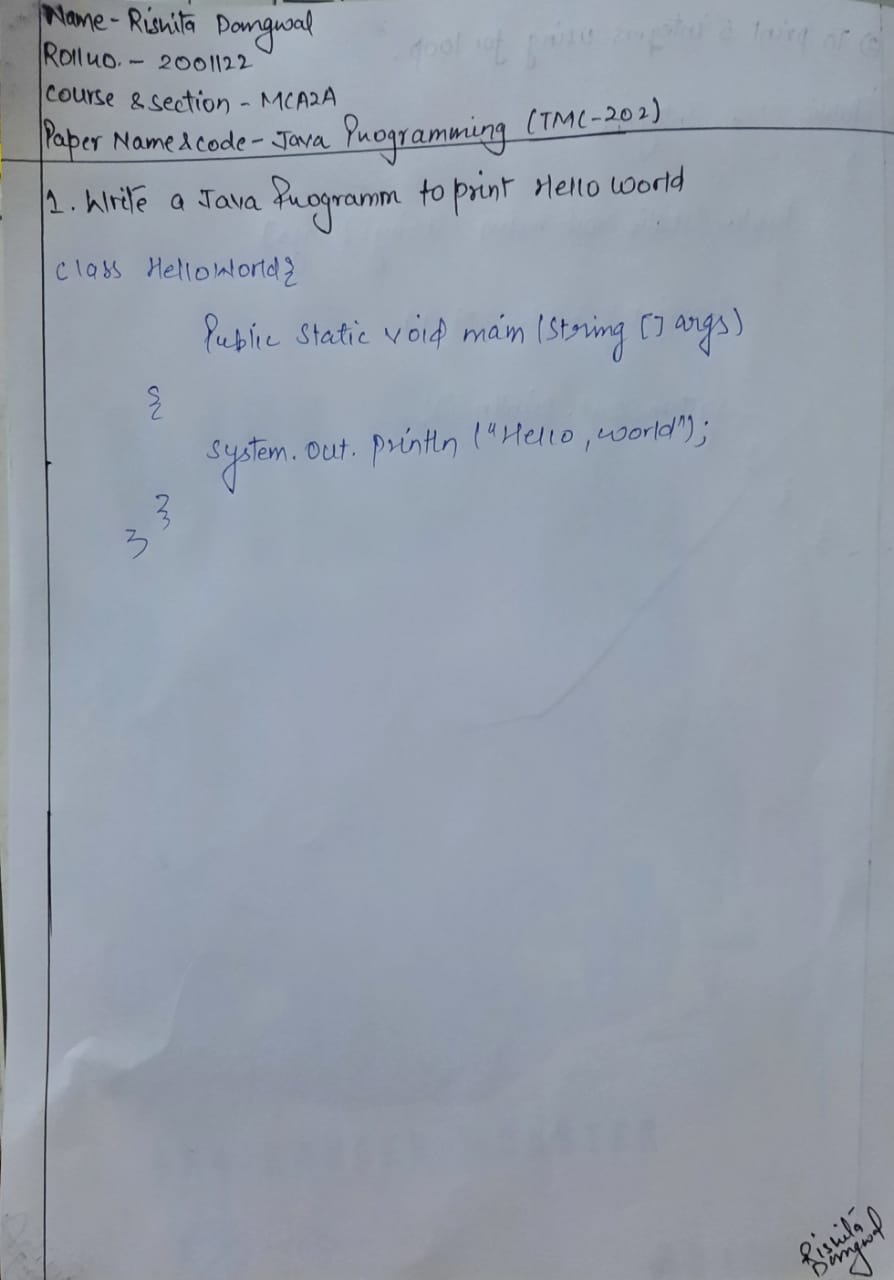 Name - Rishita Dangwal
Roll no. - 2001122
course & section - MCA2A
Paper Name & code - Java Programming (TMC-202)
1. Write a Java Programm to print Hello world
class HelloWorld{
Public static void main (String [] args)
{
system. out. println ("Hello, world");
}
}
Rishita
Dangwal